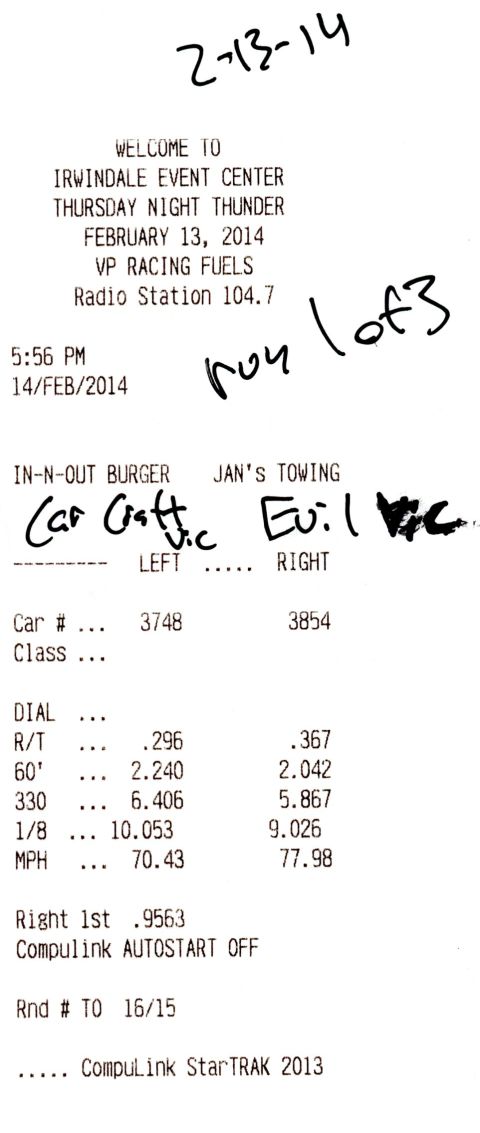 2-13-14
WELCOME TO
IRWINDALE EVENT CENTER
THURSDAY NIGHT THUNDER
FEBRUARY 13, 2014
VP RACING FUELS
Radio Station 104.7
run 1 of 3
5:56 PM
14/FEB/2014
IN-N-OUT BURGER JAN's TOWING
Car Craft Vic Evil Vic
--------- LEFT ..... RIGHT
Car # ... 3748 3854
Class ...
DIAL ...
R/T ... .296 .367
60' ... 2.240 2.042
330 ... 6.406 5.867
1/8 ... 10.053 9.026
MPH ... 70.43 77.98
Right 1st .9563
Compulink AUTOSTART OFF
Rnd # TO 16/15
..... CompuLink StarTRAK 2013